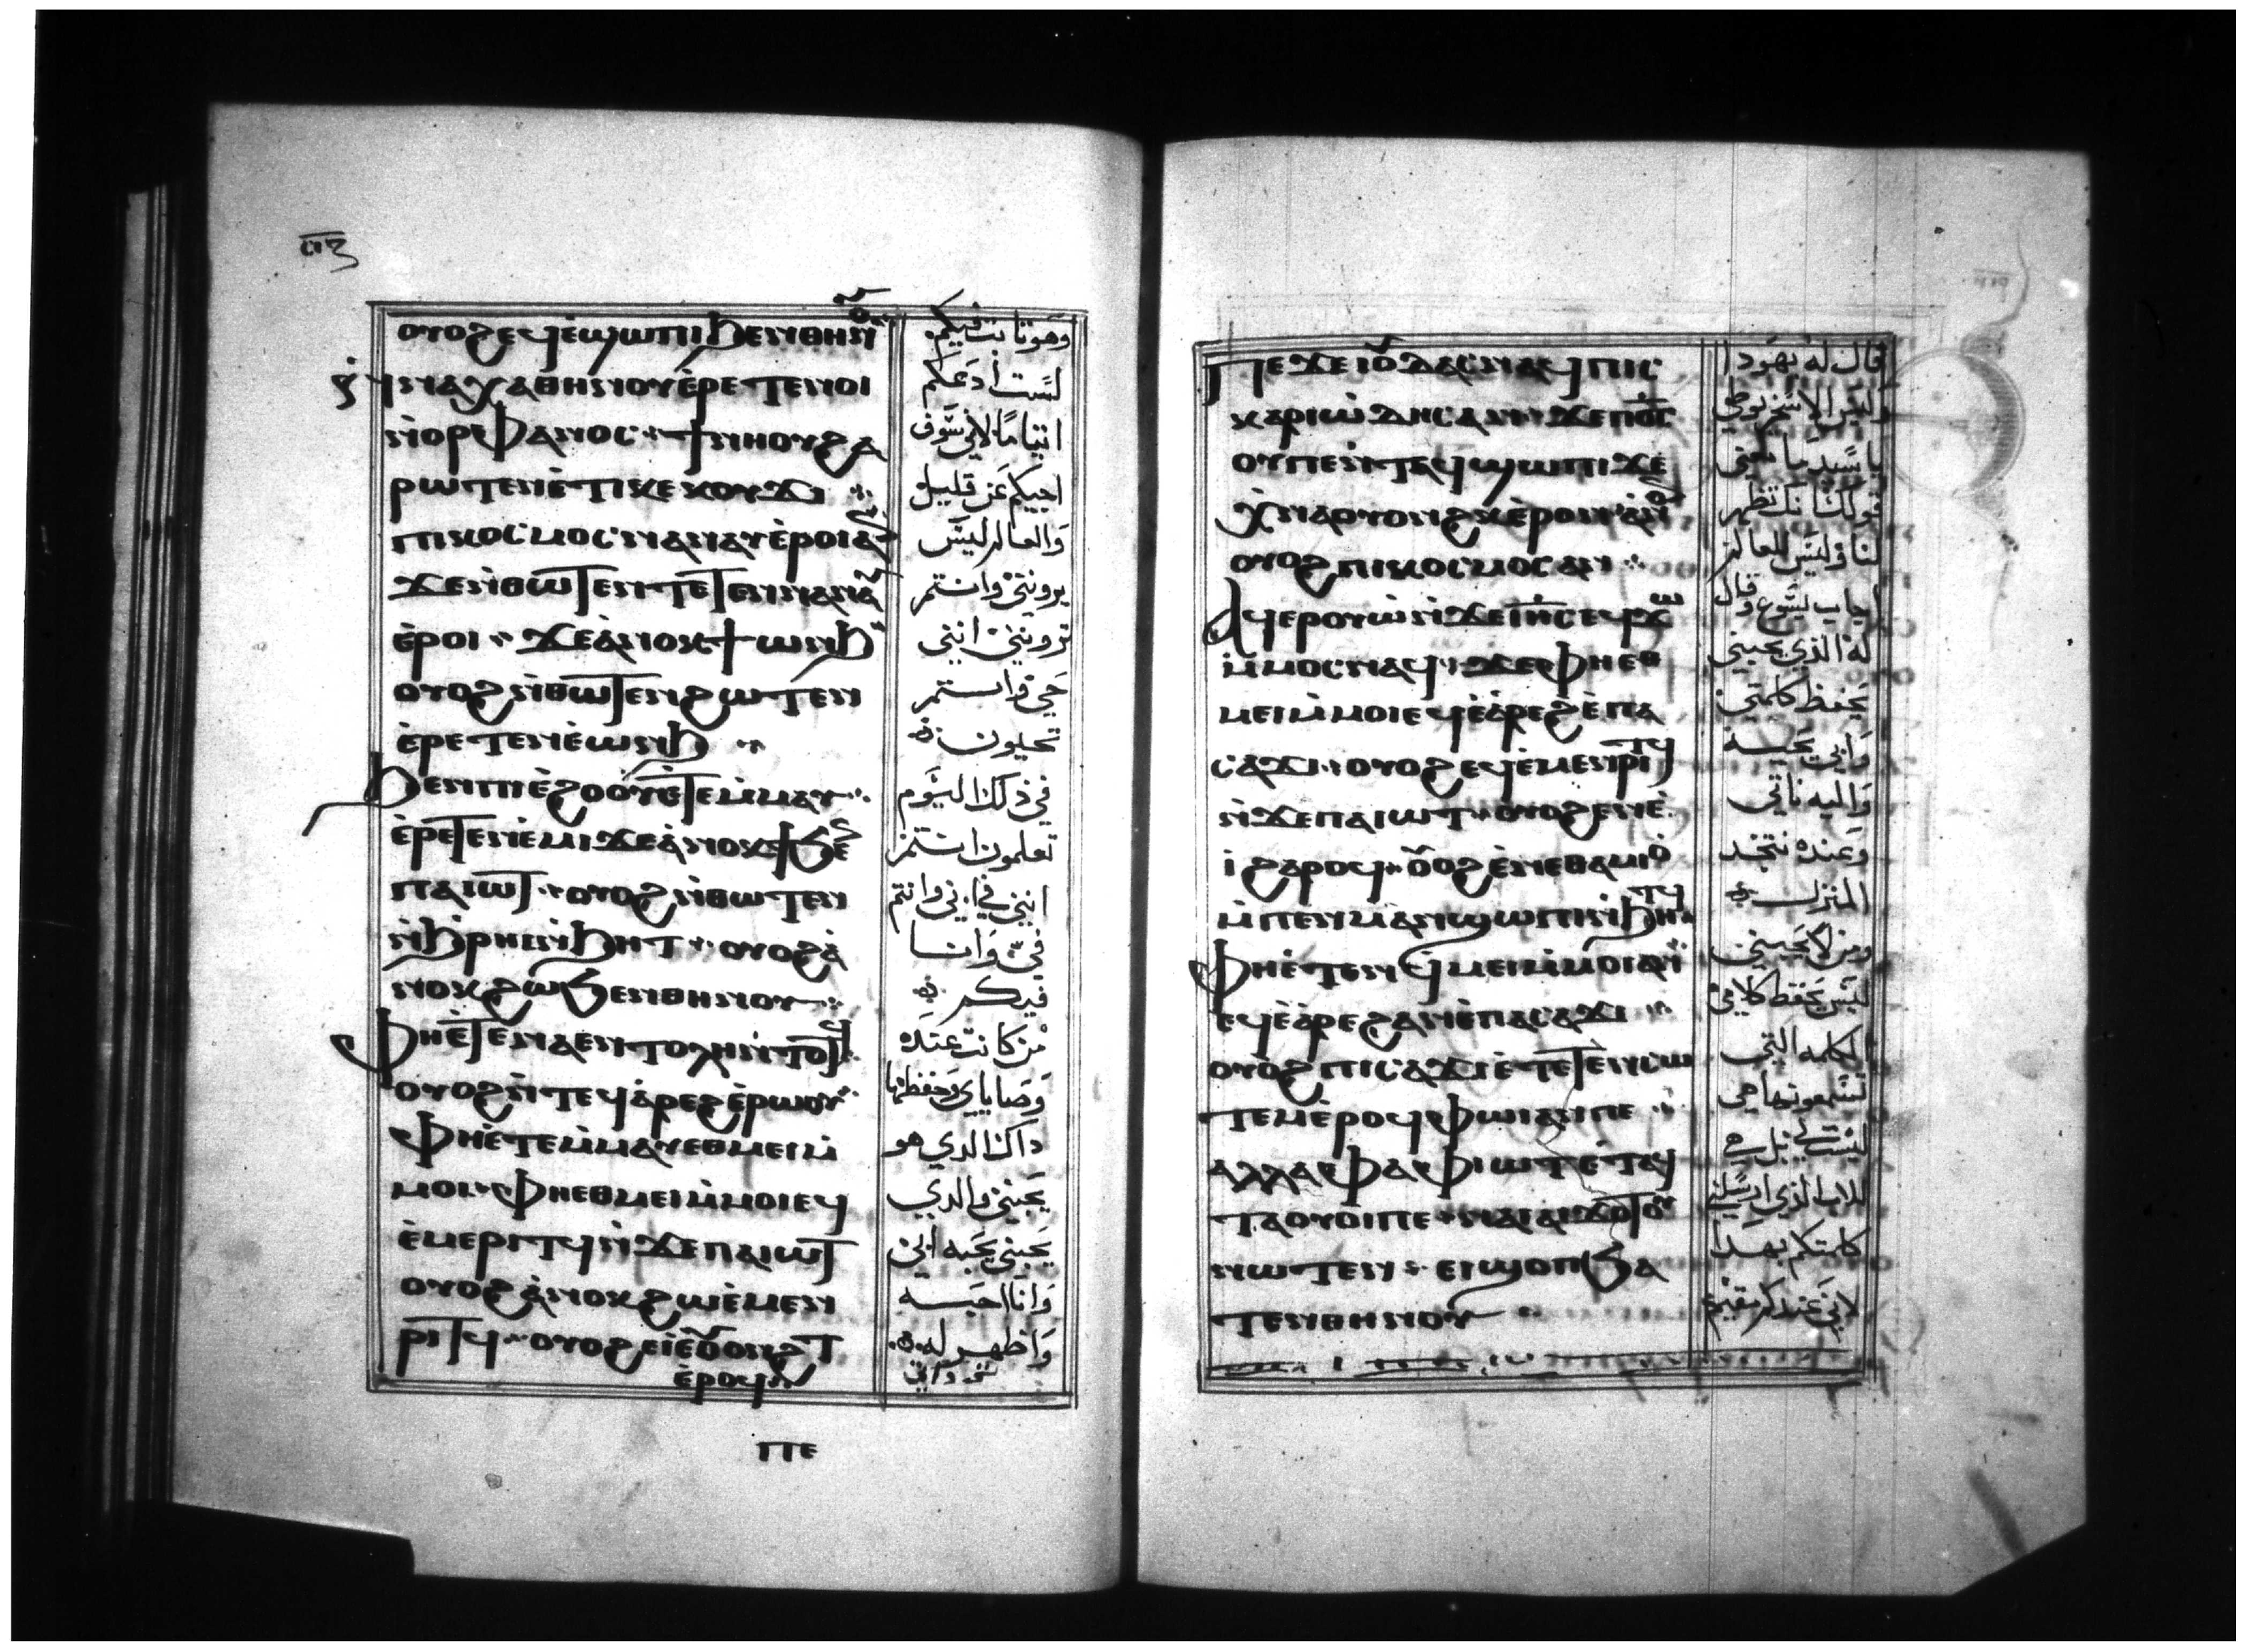 ⲡⲍ
ⲟⲩⲟϩ ⲉϥⲉ̀ϣⲱⲡⲓ ϧⲉⲛ ⲑⲏⲛⲟⲩ
ⲛ̀ⲛⲁⲭⲁ ⲑⲏⲛⲟⲩ ⲉ̀ⲣⲉⲧⲉⲛⲟⲓ
ⲛ̀ⲟⲣⲫⲁⲛⲟⲥ ϯⲛⲏⲟⲩ ϩⲁ
ⲣⲱⲧⲉⲛ ⲉ̀ⲧⲓ ⲕⲉ ⲕⲟⲩϫⲓ
ⲡⲓⲕⲟⲥⲙⲟⲥ ⲛⲁⲛⲁⲩ ⲉ̀ⲣⲟⲓ ⲁⲛ
ϫⲉ ⲛ̀ⲑⲱⲧⲉⲛ ⲧⲉⲧⲉⲛⲛⲁⲛⲁⲩ
ⲉ̀ⲣⲟⲓ ϫⲉ ⲁ̀ⲛⲟⲕ ϯⲱⲛϧ
ⲟⲩⲟϩ ⲛ̀ⲑⲱⲧⲉⲛ ϩⲱⲧⲉⲛ
ⲉ̀ⲣⲉⲧⲉⲛⲉ̀ⲱⲛϧ
ϧⲉⲛ ⲡⲓⲉ̀ϩⲟⲟⲩ ⲉ̀ⲧⲉⲙ̀ⲙⲁⲩ
ⲉ̀ⲣⲉⲧⲉⲛⲉ̀ⲙⲓ ϫⲉ ⲁ̀ⲛⲟⲕ ϯϧⲉⲛ
ⲡⲁⲓⲱⲧ ⲟⲩⲟϩ ⲛ̀ⲑⲱⲧⲉⲛ
ⲛ̀ϧⲣⲏⲓ ⲛ̀ϧⲏⲧ ⲟⲩⲟϩ ⲁ̀
ⲛⲟⲕ ϩⲱ ϧⲉⲛ ⲑⲏⲛⲟⲩ
ⲫⲏⲉ̀ⲧⲉ ⲛⲁⲉⲛⲧⲟⲗⲏ ⲛ̀ⲧⲟⲧϥ
ⲟⲩⲟϩ ⲛ̀ⲧⲉϥⲁ̀ⲣⲉϩ ⲉ̀ⲣⲱⲟⲩ
ⲫⲏⲉ̀ⲧⲉⲙ̀ⲙⲁⲩ ⲉⲑⲙⲉⲓ ⲙ̀
ⲙⲟⲓ ⲫⲏⲉⲑⲙⲉⲓ ⲙ̀ⲙⲟⲓ ⲉϥ
ⲉ̀ⲙⲉⲣⲓⲧϥ ⲛ̀ϫⲉ ⲡⲁⲓⲱⲧ
ⲟⲩⲟϩ ⲁ̀ⲛⲟⲕ ϩⲱ ⲉ̀ⲙⲉⲛ
ⲣⲓⲧϥ ⲟⲩⲟϩ ⲉⲓⲉ̀ⲟⲩⲟⲛϩⲧ
ⲉ̀ⲣⲟϥ
وهو ثابت فيكم
لست ادعكم
ايتاما لاني سوف
اجيكم عن قليل
والعالم ليس
يرونني وانتم
ترونني انني
حي وانتم
تحيون
في ذلك اليوم
تعلمون انتم
انني في ابي وانتم
في وانا
فيكم
من كانت عنده
وصاياي وحفظها
داك الدي هو
يحبني والدي
يحبني يحبه ابي
وانا احبه
واظهر له
ⲡⲉ
ⲡⲉϫⲉ ⲓⲟⲩⲇⲁⲥ ⲛⲁϥ ⲡⲓⲥ
ⲕⲁⲣⲓⲱ̀ⲧⲏⲥ ⲁⲛ ϫⲉ ⲡ̅ⲟ̅ⲥ̅
ⲟⲩ ⲡⲉⲛⲧⲁϥϣⲱⲡⲓ ϫⲉ
ⲭ̀ⲛⲁⲟⲩⲟⲛϩⲕ ⲉ̀ⲣⲟⲛ ⲁ̀ⲛⲟⲛ
ⲟⲩⲟϩ ⲡⲓⲕⲟⲥⲙⲟⲥ ⲁⲛ
ⲁϥⲉⲣⲟⲩⲱ̀ ⲛ̀ϫⲉ ⲓ̅ⲏ̅ⲥ̅ ⲉϥϫⲱ
ⲙ̀ⲙⲟⲥ ⲛⲁϥ ϫⲉ ⲫⲏⲉⲑ
ⲙⲉⲓ ⲙ̀ⲙⲟⲓ ⲉϥⲉ̀ⲁ̀ⲣⲉϩ ⲉ̀ⲡⲁ
ⲥⲁϫⲓ ⲟⲩⲟϩ ⲉϥⲉ̀ⲙⲉⲛⲣⲓⲧϥ
ⲛ̀ϫⲉ ⲡⲁⲓⲱⲧ ⲟⲩⲟϩ ⲉⲛⲉ̀
ⲓ̀ ϩⲁⲣⲟϥ ⲟⲩⲟϩ ⲉ̀ⲛⲉⲑⲁⲙⲓⲟ̀
ⲙ̀ⲡⲉⲛⲙⲁⲛ̀ϣⲱⲡⲓ ⲛ̀ϧⲏⲧϥ
ⲫⲏⲉ̀ⲧⲉⲛϥⲙⲉⲓ ⲙ̀ⲙⲟⲓ ⲁⲛ
ⲉϥⲉ̀ⲁ̀ⲣⲉϩ ⲁⲛ ⲉ̀ⲡⲁⲥⲁϫⲓ
ⲟⲩⲟϩ ⲡⲓⲥⲁϫⲓ ⲉ̀ⲧⲉⲧⲉⲛⲥⲱ
ⲧⲉⲙ ⲉ̀ⲣⲟϥ ⲫⲱⲓ ⲁⲛ ⲡⲉ
ⲁⲗⲗⲁ ⲫⲁ ⲫⲓⲱⲧ ⲉ̀ⲧⲁϥ
ⲧⲁⲟⲩⲟⲓ ⲡⲉ ⲛⲁⲓ ⲁⲓϫⲟⲧⲟⲩ
ⲛⲱⲧⲉⲛ ⲉⲓϣⲟⲡ ϧⲁ
ⲧⲉⲛ ⲑⲏⲛⲟⲩ
قال له يهودا
وليس الاسخريوطي
يا سيد ما معنى
قولك انك تظهر
لنا وليس للعالم
اجاب يسوع وقال
له الذي يحبني
يحفظ كلمتي
وابي يحبه
واليه ناتي
وعنده نتخذ
المنزل
ومن لا يحبني
ليس يحفظ كلامي
الكلمه التي
تسمعونها هي
ليست لي بل هي
للاب الذي ارسلني
كلمتكم بهذا
لاني عندكم مقيم